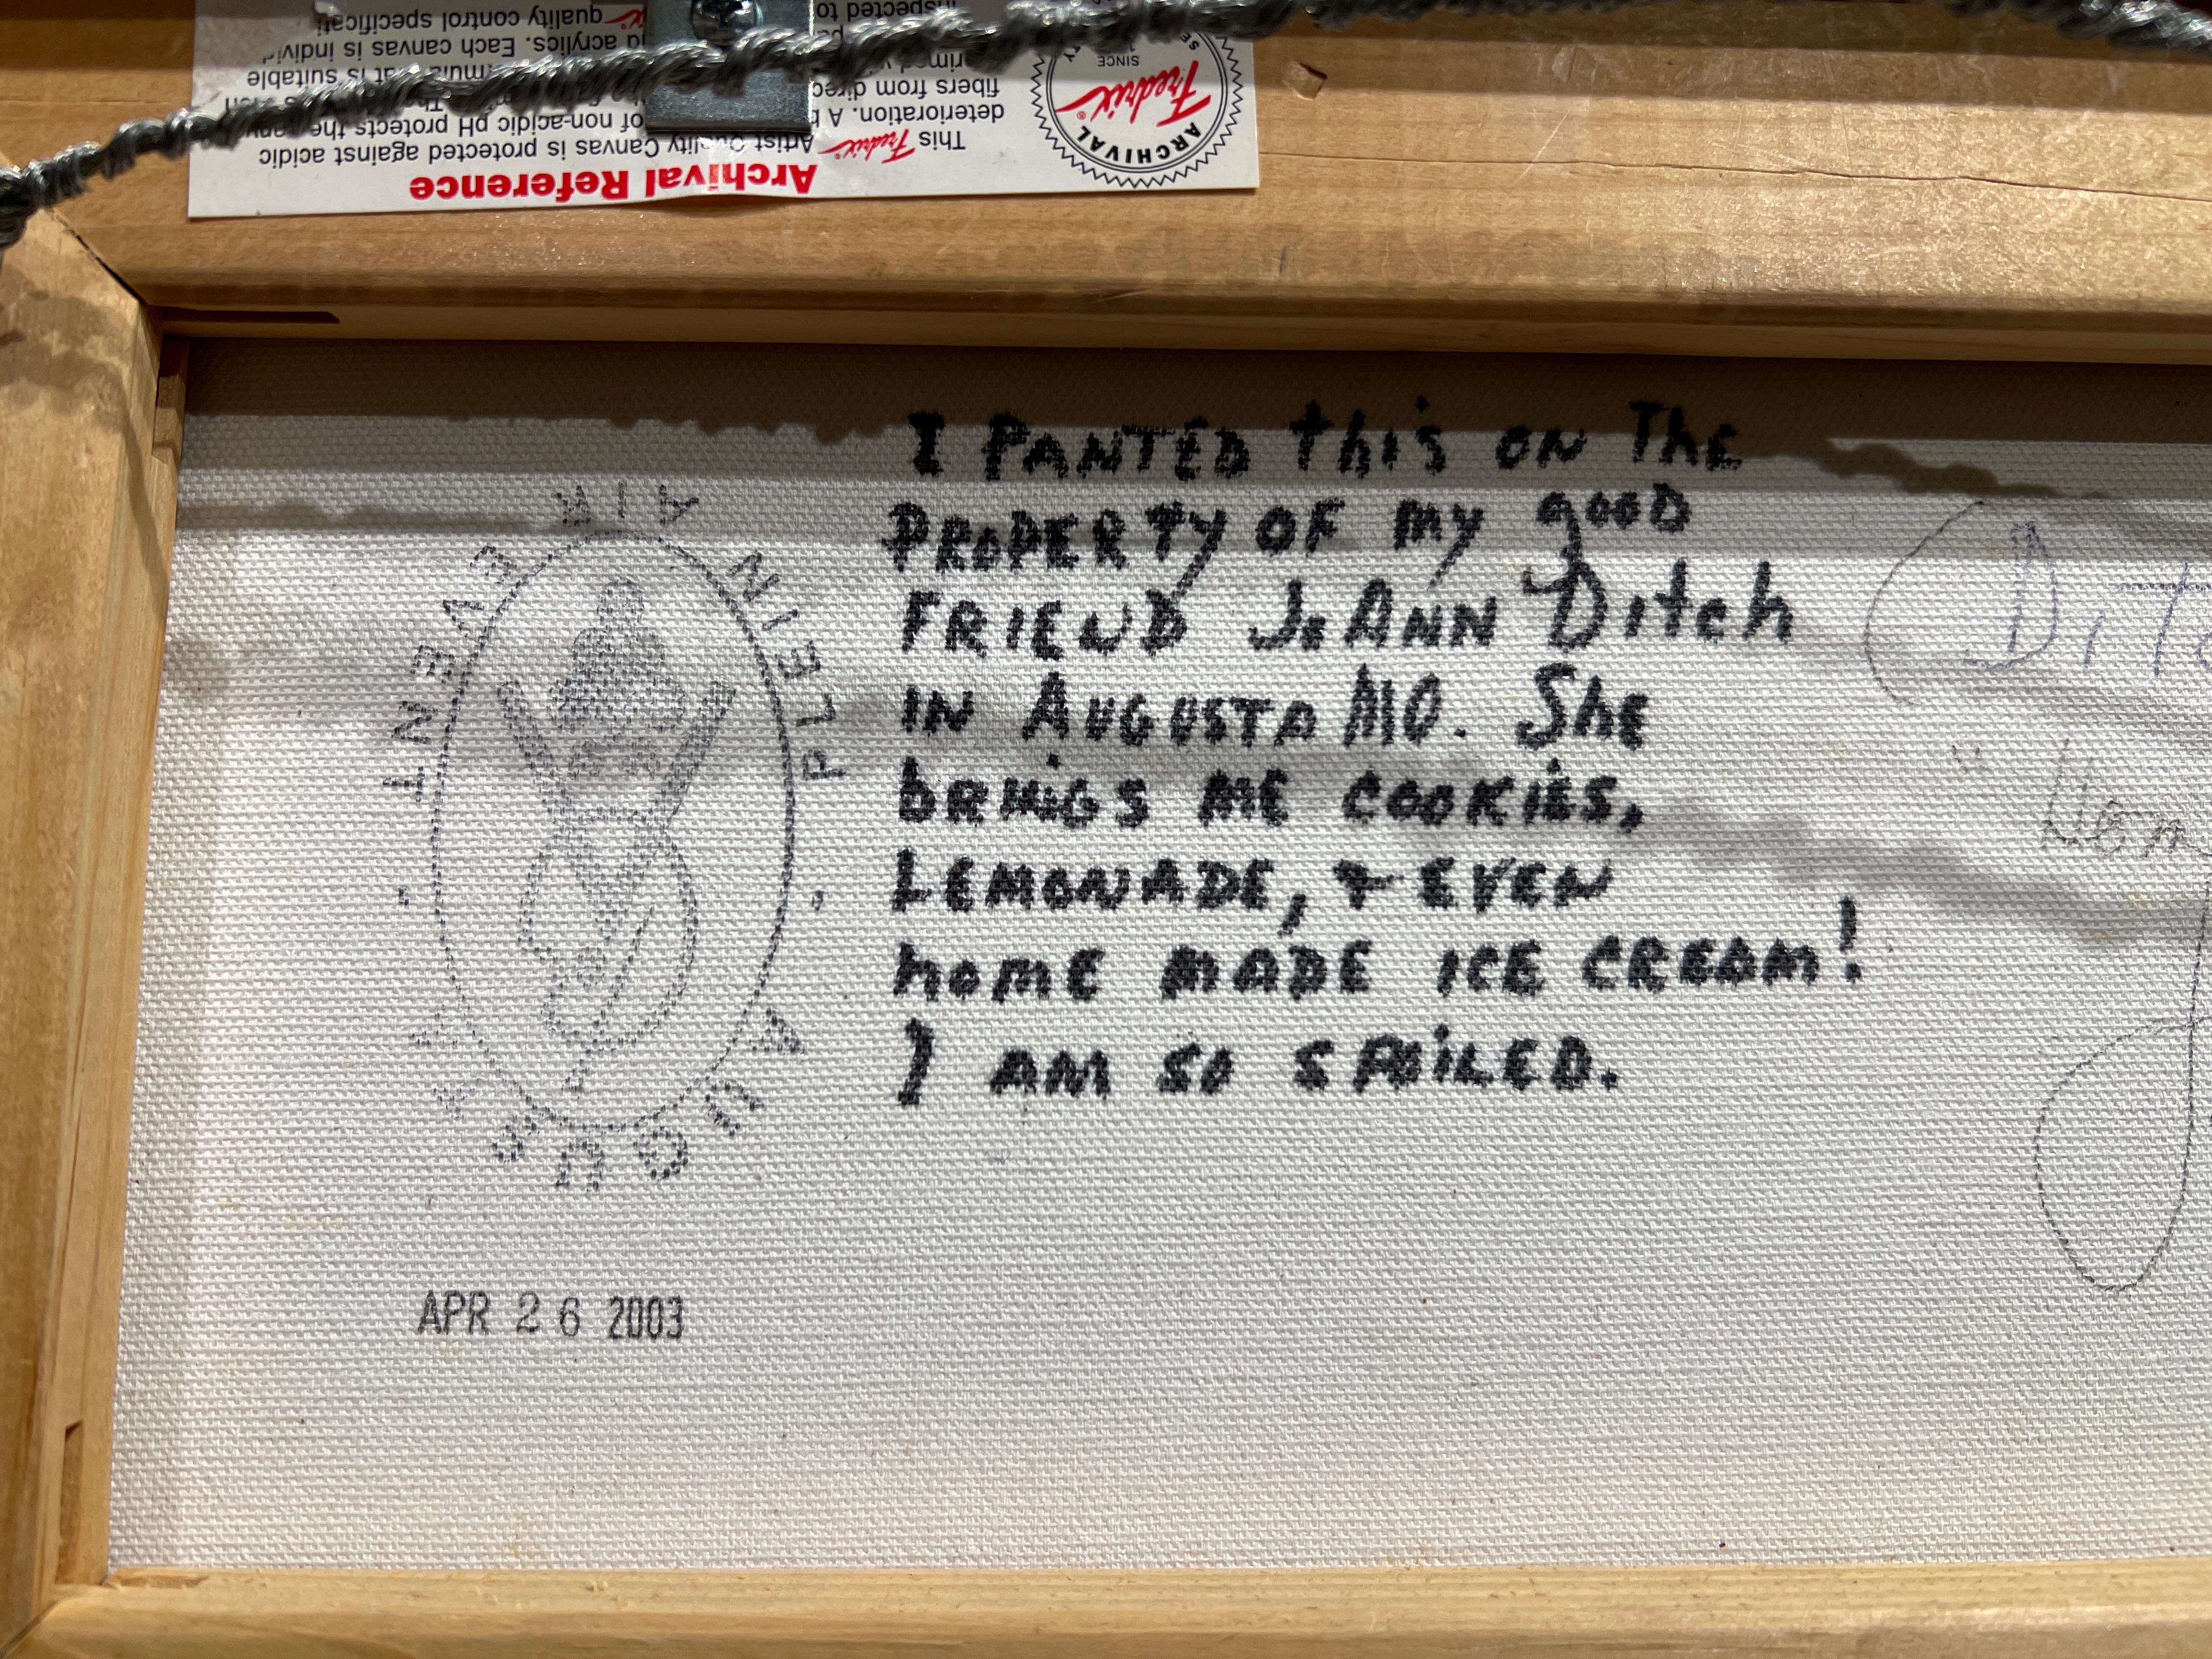 Archival Reference
This Fredrix Artist Quality Canvas is protected against acidic
deterioration. A
of non-acidic pH protects the
fibers from direc
is suitable
acrylics. Each canvas is indivi
quality control specificati
spected to
Fredrix®
ARCHIVAL
SINCE
I PANTED this ON The
PROPERTY OF my gooD
FRIEND JoANN Ditch
IN AUGUSTA MO. She
bRNIGS ME COOKiES,
LEMONADE, & EVEN
home MADE ICE CREAM!
I AM SO SPOiLED.
AUGUSTA PLEIN AIR EVENT
APR 26 2003
Dit
"Hom